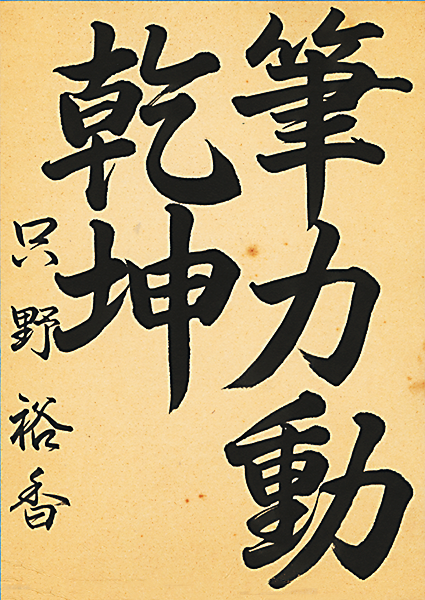 筆力動
乾坤
只野裕香